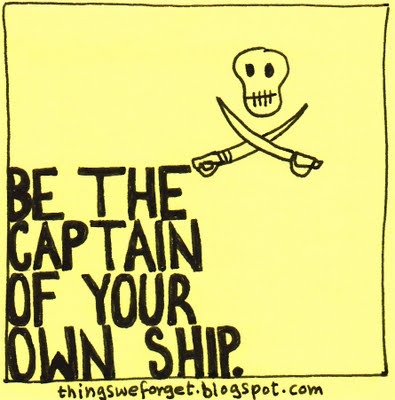 BE THE
CAPTAIN
OF YOUR
OWN SHIP.
thingsweforget.blogspot.com